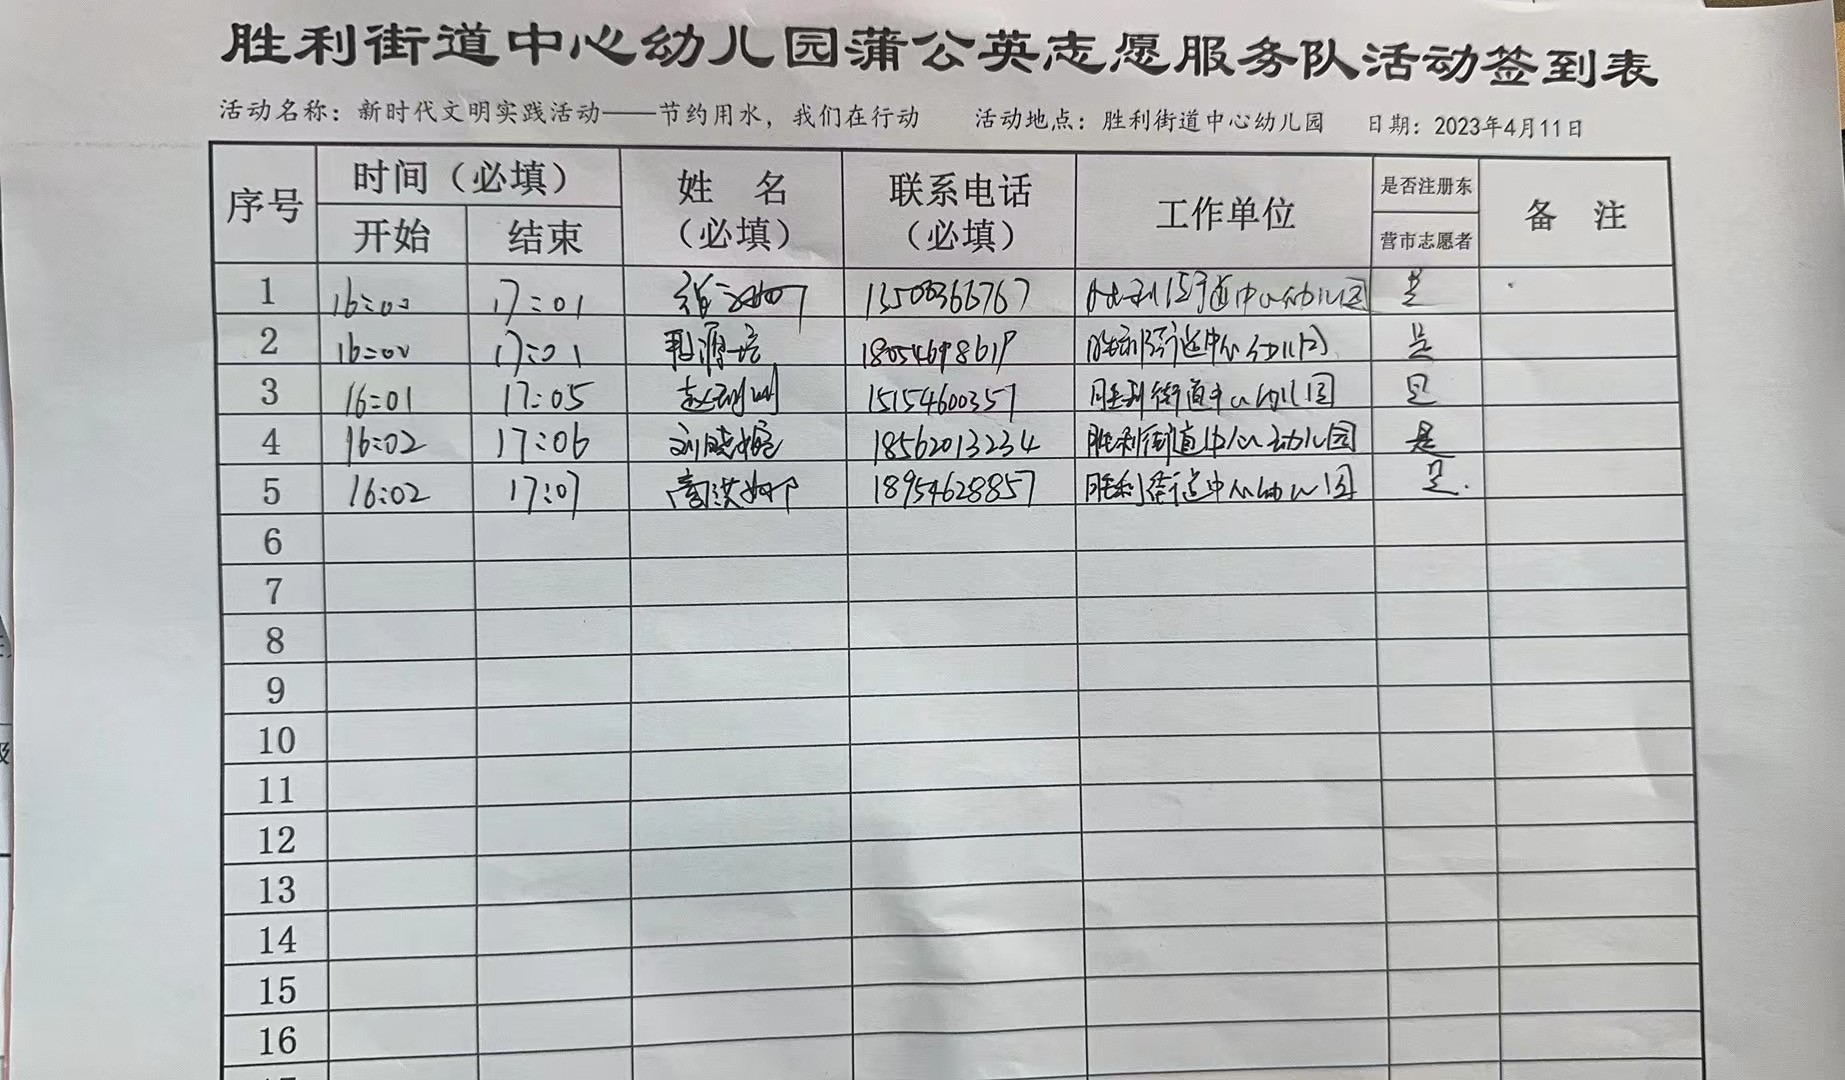 胜利街道中心幼儿园蒲公英志愿服务队活动签到表
活动名称：新时代文明实践活动——节约用水，我们在行动 活动地点：胜利街道中心幼儿园 日期：2023年4月11日
序号 时间（必填） 姓 名（必填） 联系电话（必填） 工作单位 是否注册东营市志愿者 备 注
开始 结束
1 16:00 17:01 13500366767 胜利街道中心幼儿园 是
2 16:00 17:01 18054698619 胜利街道中心幼儿园 是
3 16:01 17:05 15154600357 胜利街道中心幼儿园 是
4 16:02 17:06 刘晓婷 18562013234 胜利街道中心幼儿园 是
5 16:02 17:07 18954628857 胜利街道中心幼儿园 是.
6
7
8
9
10
11
12
13
14
15
16